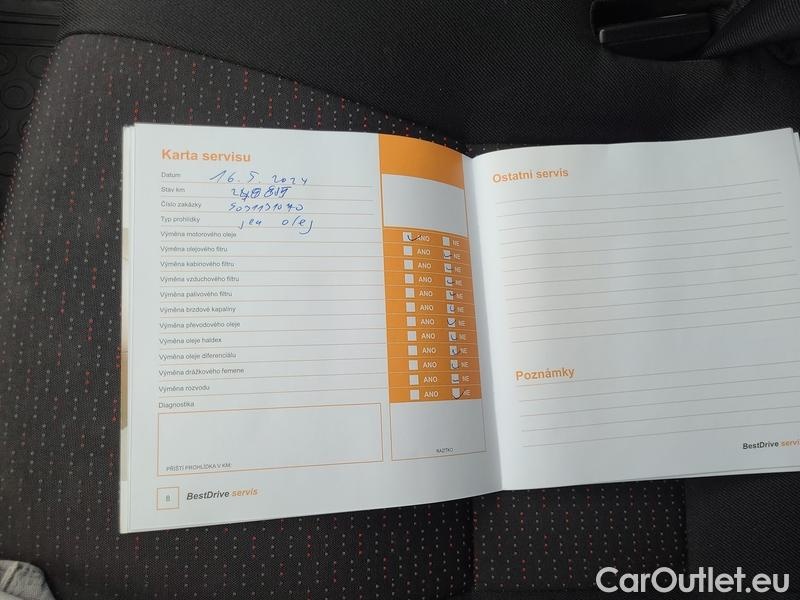 Karta servisu
Datum 16. 5. 2024
Stav km
Číslo zakázky
Typ prohlídky jen olej
Výměna motorového oleje ANO NE
Výměna olejového filtru ANO NE
Výměna kabinového filtru ANO NE
Výměna vzduchového filtru ANO NE
Výměna palivového filtru ANO NE
Výměna brzdové kapaliny ANO NE
Výměna převodového oleje ANO NE
Výměna oleje haldex ANO NE
Výměna oleje diferenciálu ANO NE
Výměna drážkového řemene ANO NE
Výměna rozvodu ANO NE
Diagnostika ANO NE
PŘÍŠTÍ PROHLÍDKA V KM:
RAZÍTKO
8 BestDrive servis
Ostatní servis
Poznámky
BestDrive servi
CarOutlet.eu